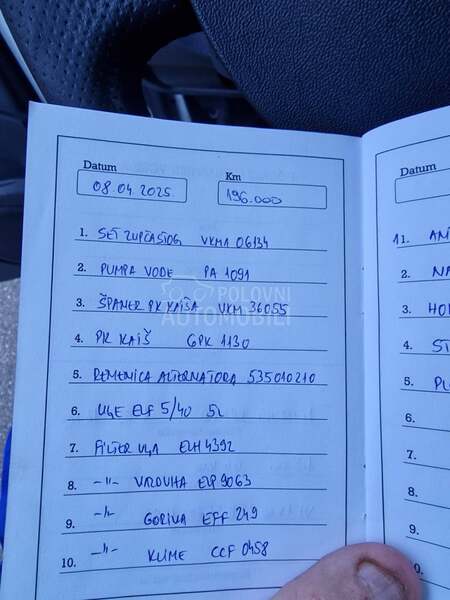 Datum
Km
08.04.2025.
196.000
1. SET ZUPČASTOG VKMA 06134
2. PUMPA VODE PA 1091
3. ŠPANER PK KAIŠA VKM 36055
4. PK KAIŠ 6PK 1130
5. REMENICA ALTERNATORA 535010210
6. ULJE ELF 5/40 5L
7. FILTER ULJA ELH 4392
8. -||- VAZDUHA ELP 9063
9. -||- GORIVA EFF 249
10. -||- KLIME CCF 0458
POLOVNI
AUTOMOBILI
Datum
11. AN
2. NA
3. HO
4. ST
5. PL
6.
7.
8.
9.
10.